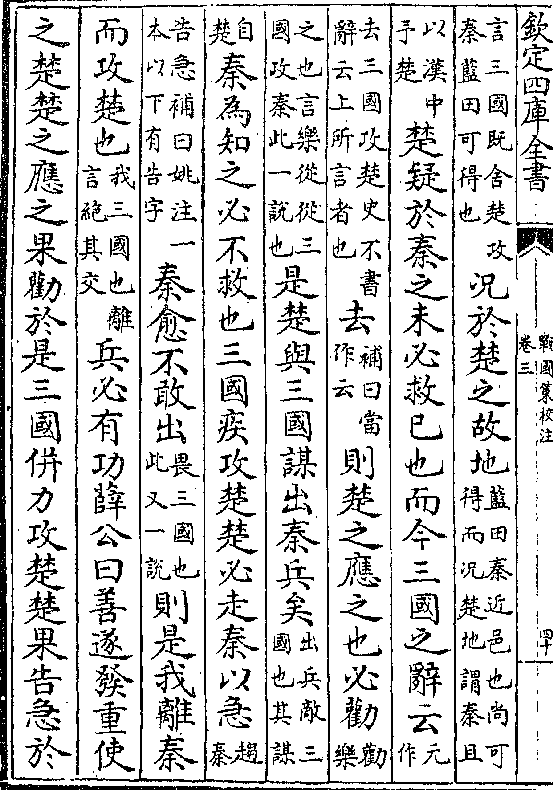 欽定四庫全書
戰國策校注
卷三
四十
言三國既舍楚攻秦藍田可得也況於楚之故地藍田秦近邑也尚可得而況楚地謂秦且
以漢中予楚楚疑於秦之未必救已也而今三國之辭云元作
去三國攻楚史不書辭云上所言者也去補曰當作云則楚之應之也必勸勸樂
之也言樂從從三國攻秦此一說也是楚與三國謀出秦兵矣出兵敵三國也其謀
自楚秦為知之必不救也三國疾攻楚楚必走秦以急趨秦
告急補曰姚注一本以下有告字秦愈不敢出畏三國也此又一說則是我離秦
而攻楚也我三國也離言絕其交兵必有功薛公曰善遂發重使
之楚楚之應之果勸於是三國併力攻楚楚果告急於